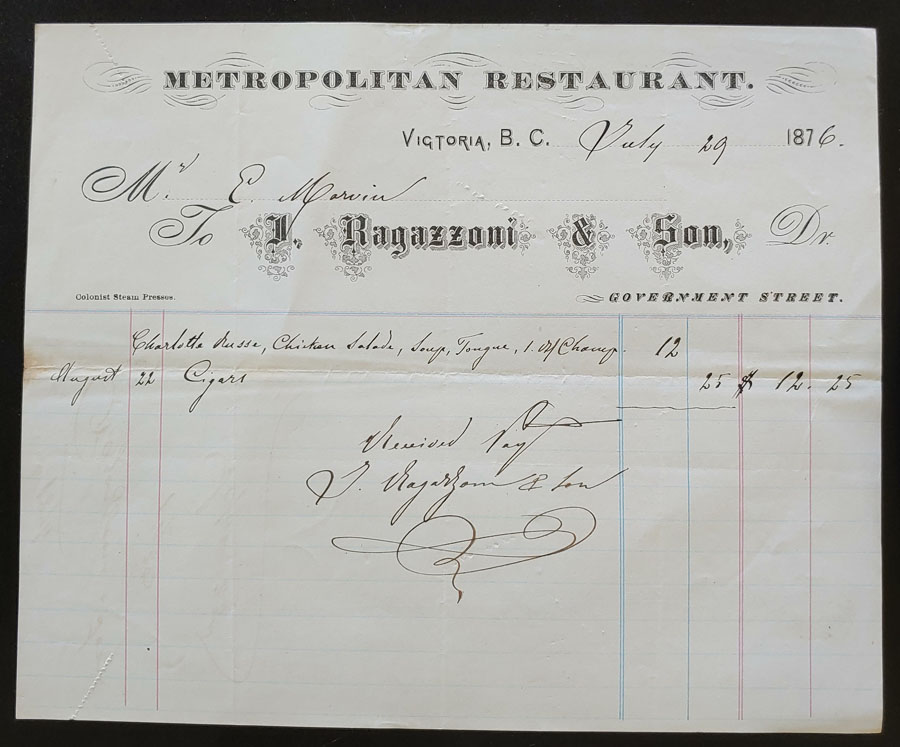 METROPOLITAN RESTAURANT.
VICTORIA, B. C. July 29 1876.
Mr. E. Marvin
To J. Ragazzoni & Son, Dr.
Colonist Steam Presses. GOVERNMENT STREET.
Charlotte Russe, Chicken Salade, Soup, Tongue, 1. Champ. 12
August 22 Cigars 25 $ 12. 25
Received Payt
J. Ragazzoni & Son